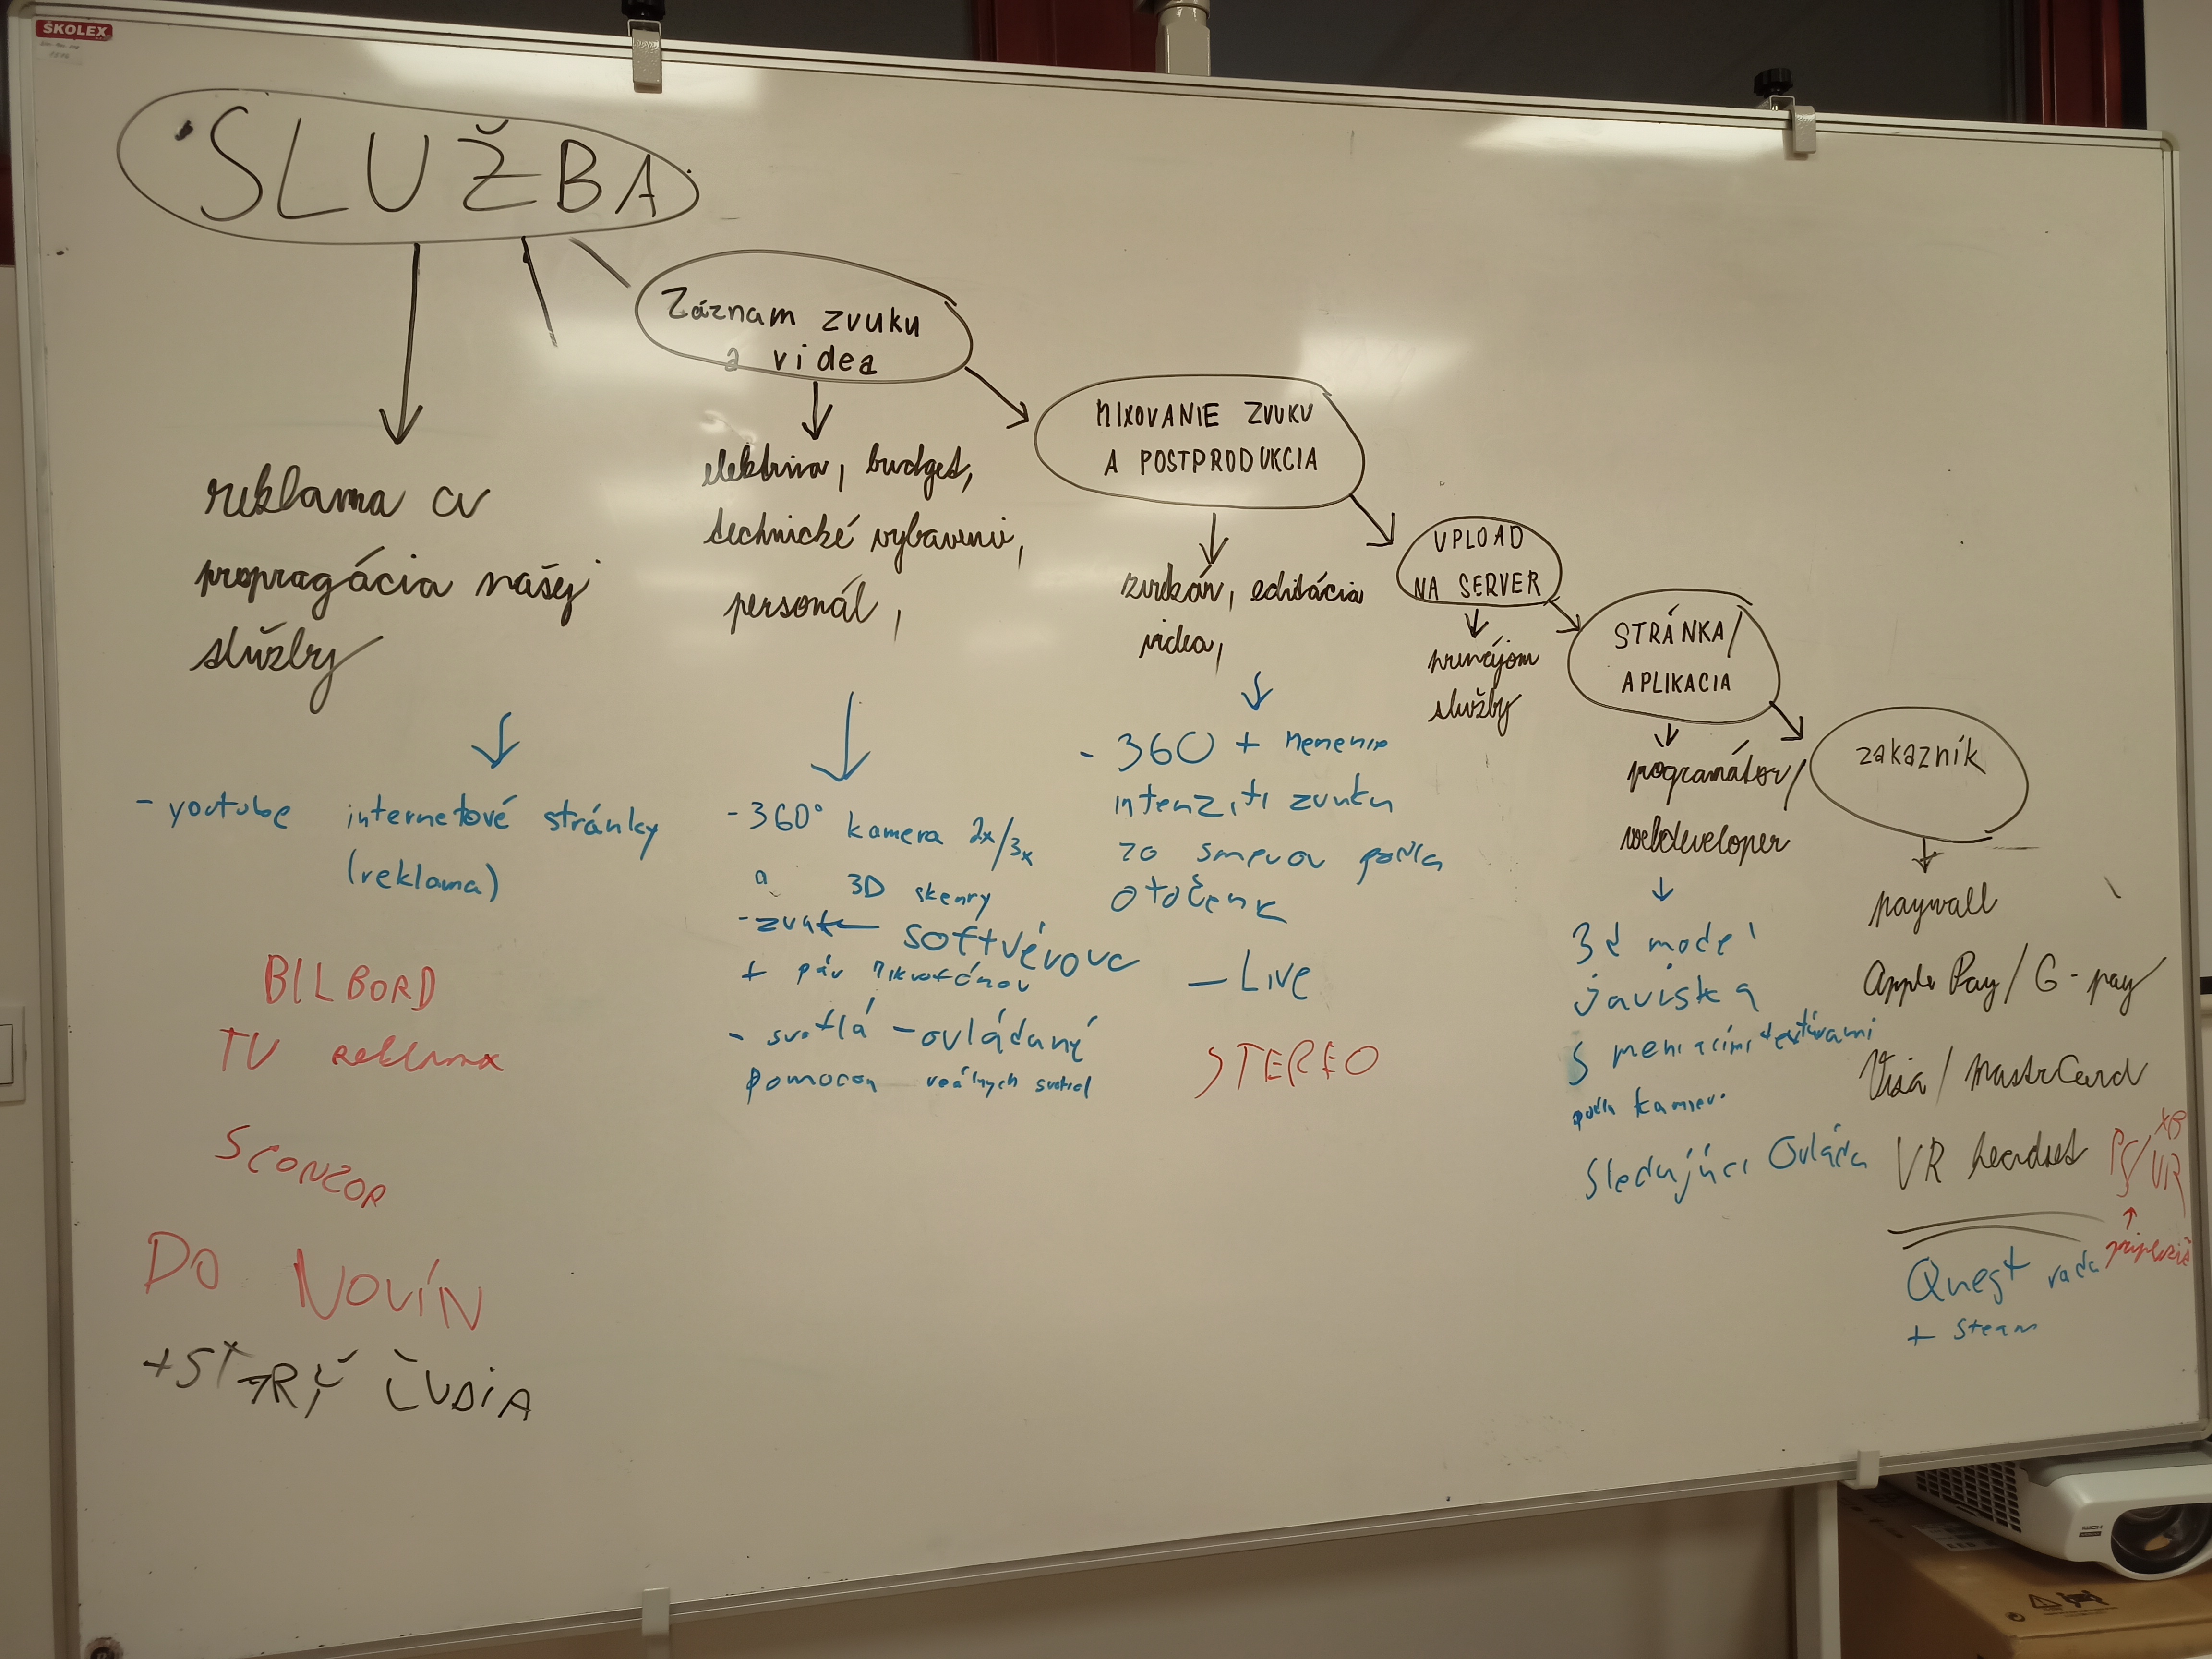 ŠKOLEX
SLUŽBA
reklama a
propragácia našej
služby
- youtube internetové stránky
(reklama)
BILBORD
TV reklama
SCONZOR
DO NOVÍN
+STARÝ ĽUDIA
Záznam zvuku
a videa
elektrina, budget,
technické vybavenie,
personál,
- 360° kamera 2x/3x
a 3D skenry
- zvuk ← softvérovo
+ pár mikrofónov
- svetlá - ovládaný
pomocou reálnych svetiel
MIXOVANIE ZVUKU
A POSTPRODUKCIA
zvukár, editácia
videa,
- 360 + menenie
intenziti zvuku
zo smerov podľa
otočenia
- Live
STEREO
UPLOAD
NA SERVER
prenájom
služby
STRÁNKA/
APLIKACIA
programátor/
webdeveloper
3d model
javiska
s meniacimi textúrami
podľa kamier
Sledujúci Ovláda
zakazník
paywall
Apple Pay / G-pay
Visa / MasterCard
VR headset PS/XB VR
Quest rada
+ Steam